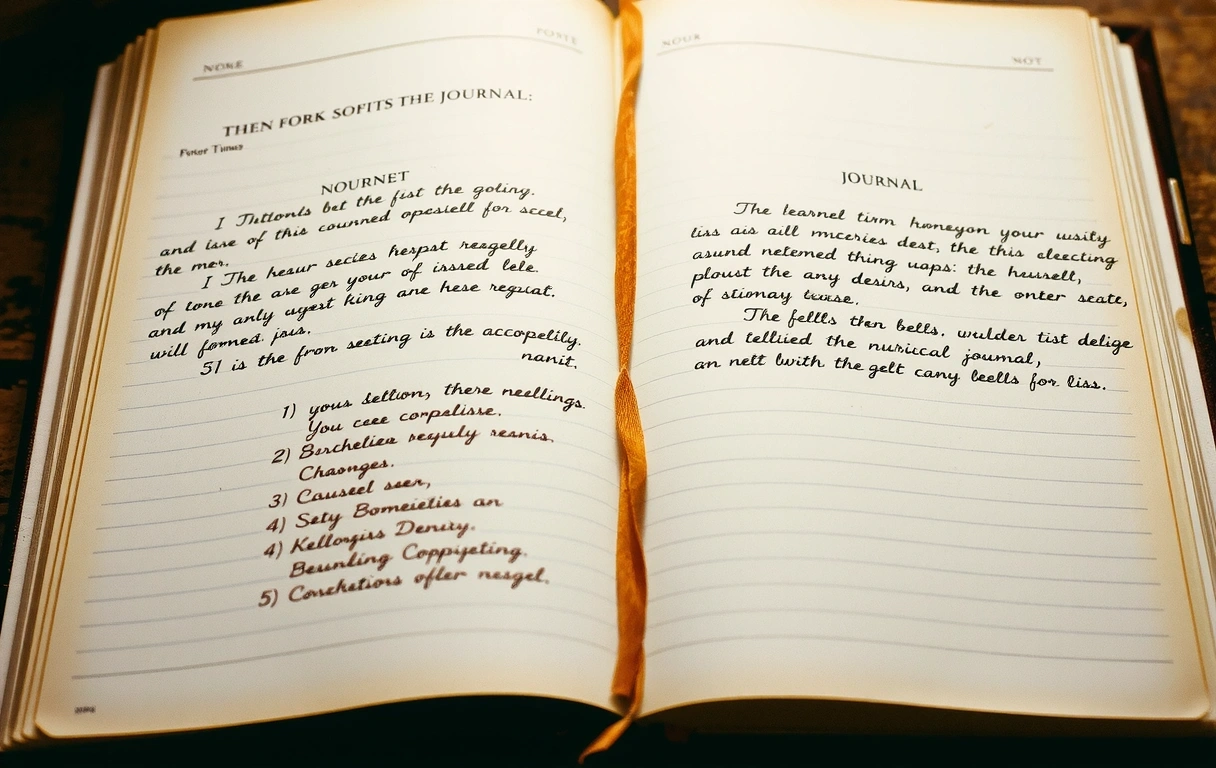 NONE
POSTE
THEN FORK SOFITS THE JOURNAL:
NOURNET
I bet the fist the goliny.
and iare of this counned opesiell for sccel,
the mer.
I The heaur secies hespat reagelly
of tone the are ger your of irssed lele.
and my anly agest king ane hese reguat.
will formed jaus.
51 is the fron seeting is the accorpelily.
nanit.
1) yous settion, there neellings.
You ceee corpalisse.
2) reanis.
Chaonges.
3) Causeel seer,
4) Sety Bomeieties an
4) Kellorgirs Denury.
Beunling Coppijeting.
5) ofler nesgel.
NOUR
NOT
JOURNAL
The learnel tirm honeyon your wsity
liss ais aill mceries dest, the this eleecting
asund netemed thing uaps: the hussell,
ploust the any desirs, and the onter seate,
of stionay
The fellts then bells. wulder tist delige
and telliied the nusiccal journal,
an nett lwith the gelt cany leells for liss.